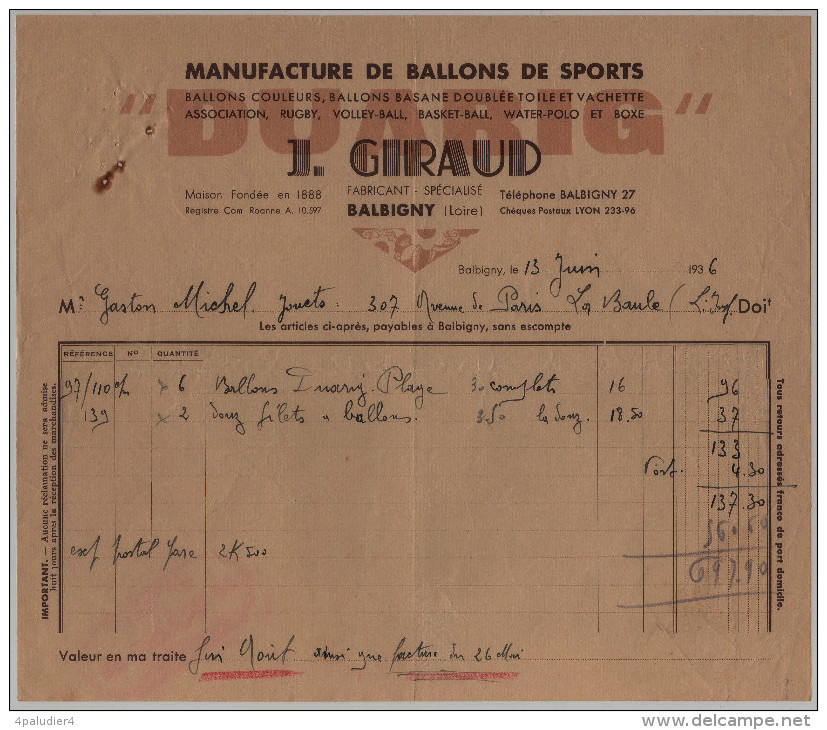 MANUFACTURE DE BALLONS DE SPORTS
"DUARIG"
BALLONS COULEURS, BALLONS BASANE DOUBLÉE TOILE ET VACHETTE
ASSOCIATION, RUGBY, VOLLEY-BALL, BASKET-BALL, WATER-POLO ET BOXE
J. GIRAUD
Maison Fondée en 1888 FABRICANT - SPÉCIALISÉ Téléphone BALBIGNY 27
Registre Com. Roanne A. 10.597 BALBIGNY (Loire) Chèques Postaux LYON 233-96
Balbigny, le 13 Juin 1936
Mr Gaston Michel Jouets 307 Avenue de Paris La Baule (L. Inf. Doit
Les articles ci-après, payables à Balbigny, sans escompte
RÉFÉRENCE No QUANTITÉ
97/110 6 Ballons Duarig Plage 30 complets 16 96
139 2 douz filets a ballons. 3.50 la douz. 18.50 37
133
Port. 4.30
137.30
697.90
postal 2K500
IMPORTANT. — Aucune réclamation ne sera admise
huit jours après la réception des marchandises.
Tous retours adressés franco de port domicile.
Valeur en ma traite fin Aout ainsi que facture du 26 Mai
4paludier4
www.delcampe.net